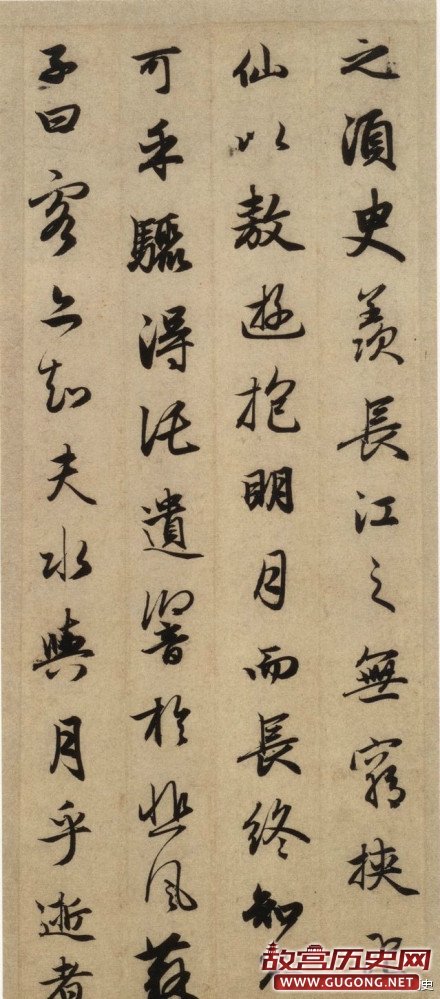 之須臾羨長江之無窮挾飛
仙以敖遊抱明月而長終知
可乎驟得託遺響於悲風蘇
子曰客亦知夫水與月乎逝者
故宫历史网
WWW.GUGONG.NET
史